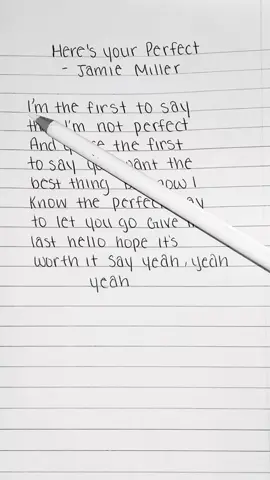 Here's your Perfect
- Jamie Miller
I'm the first to say
I'm not perfect
And the first
to say want the
best thing now I
Know the perfect
to let you go Give
last hello hope it's
worth it say yeah, yeah
yeah